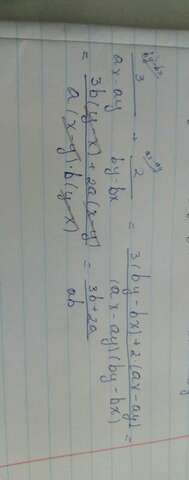 by-bx ax-ay
3/(ax-ay) + 2/(by-bx) = (3(by-bx)+2(ax-ay))/((ax-ay)(by-bx)) =
= (3b(y-x)+2a(x-y))/(a(x-y)·b(y-x)) = (3b+2a)/ab